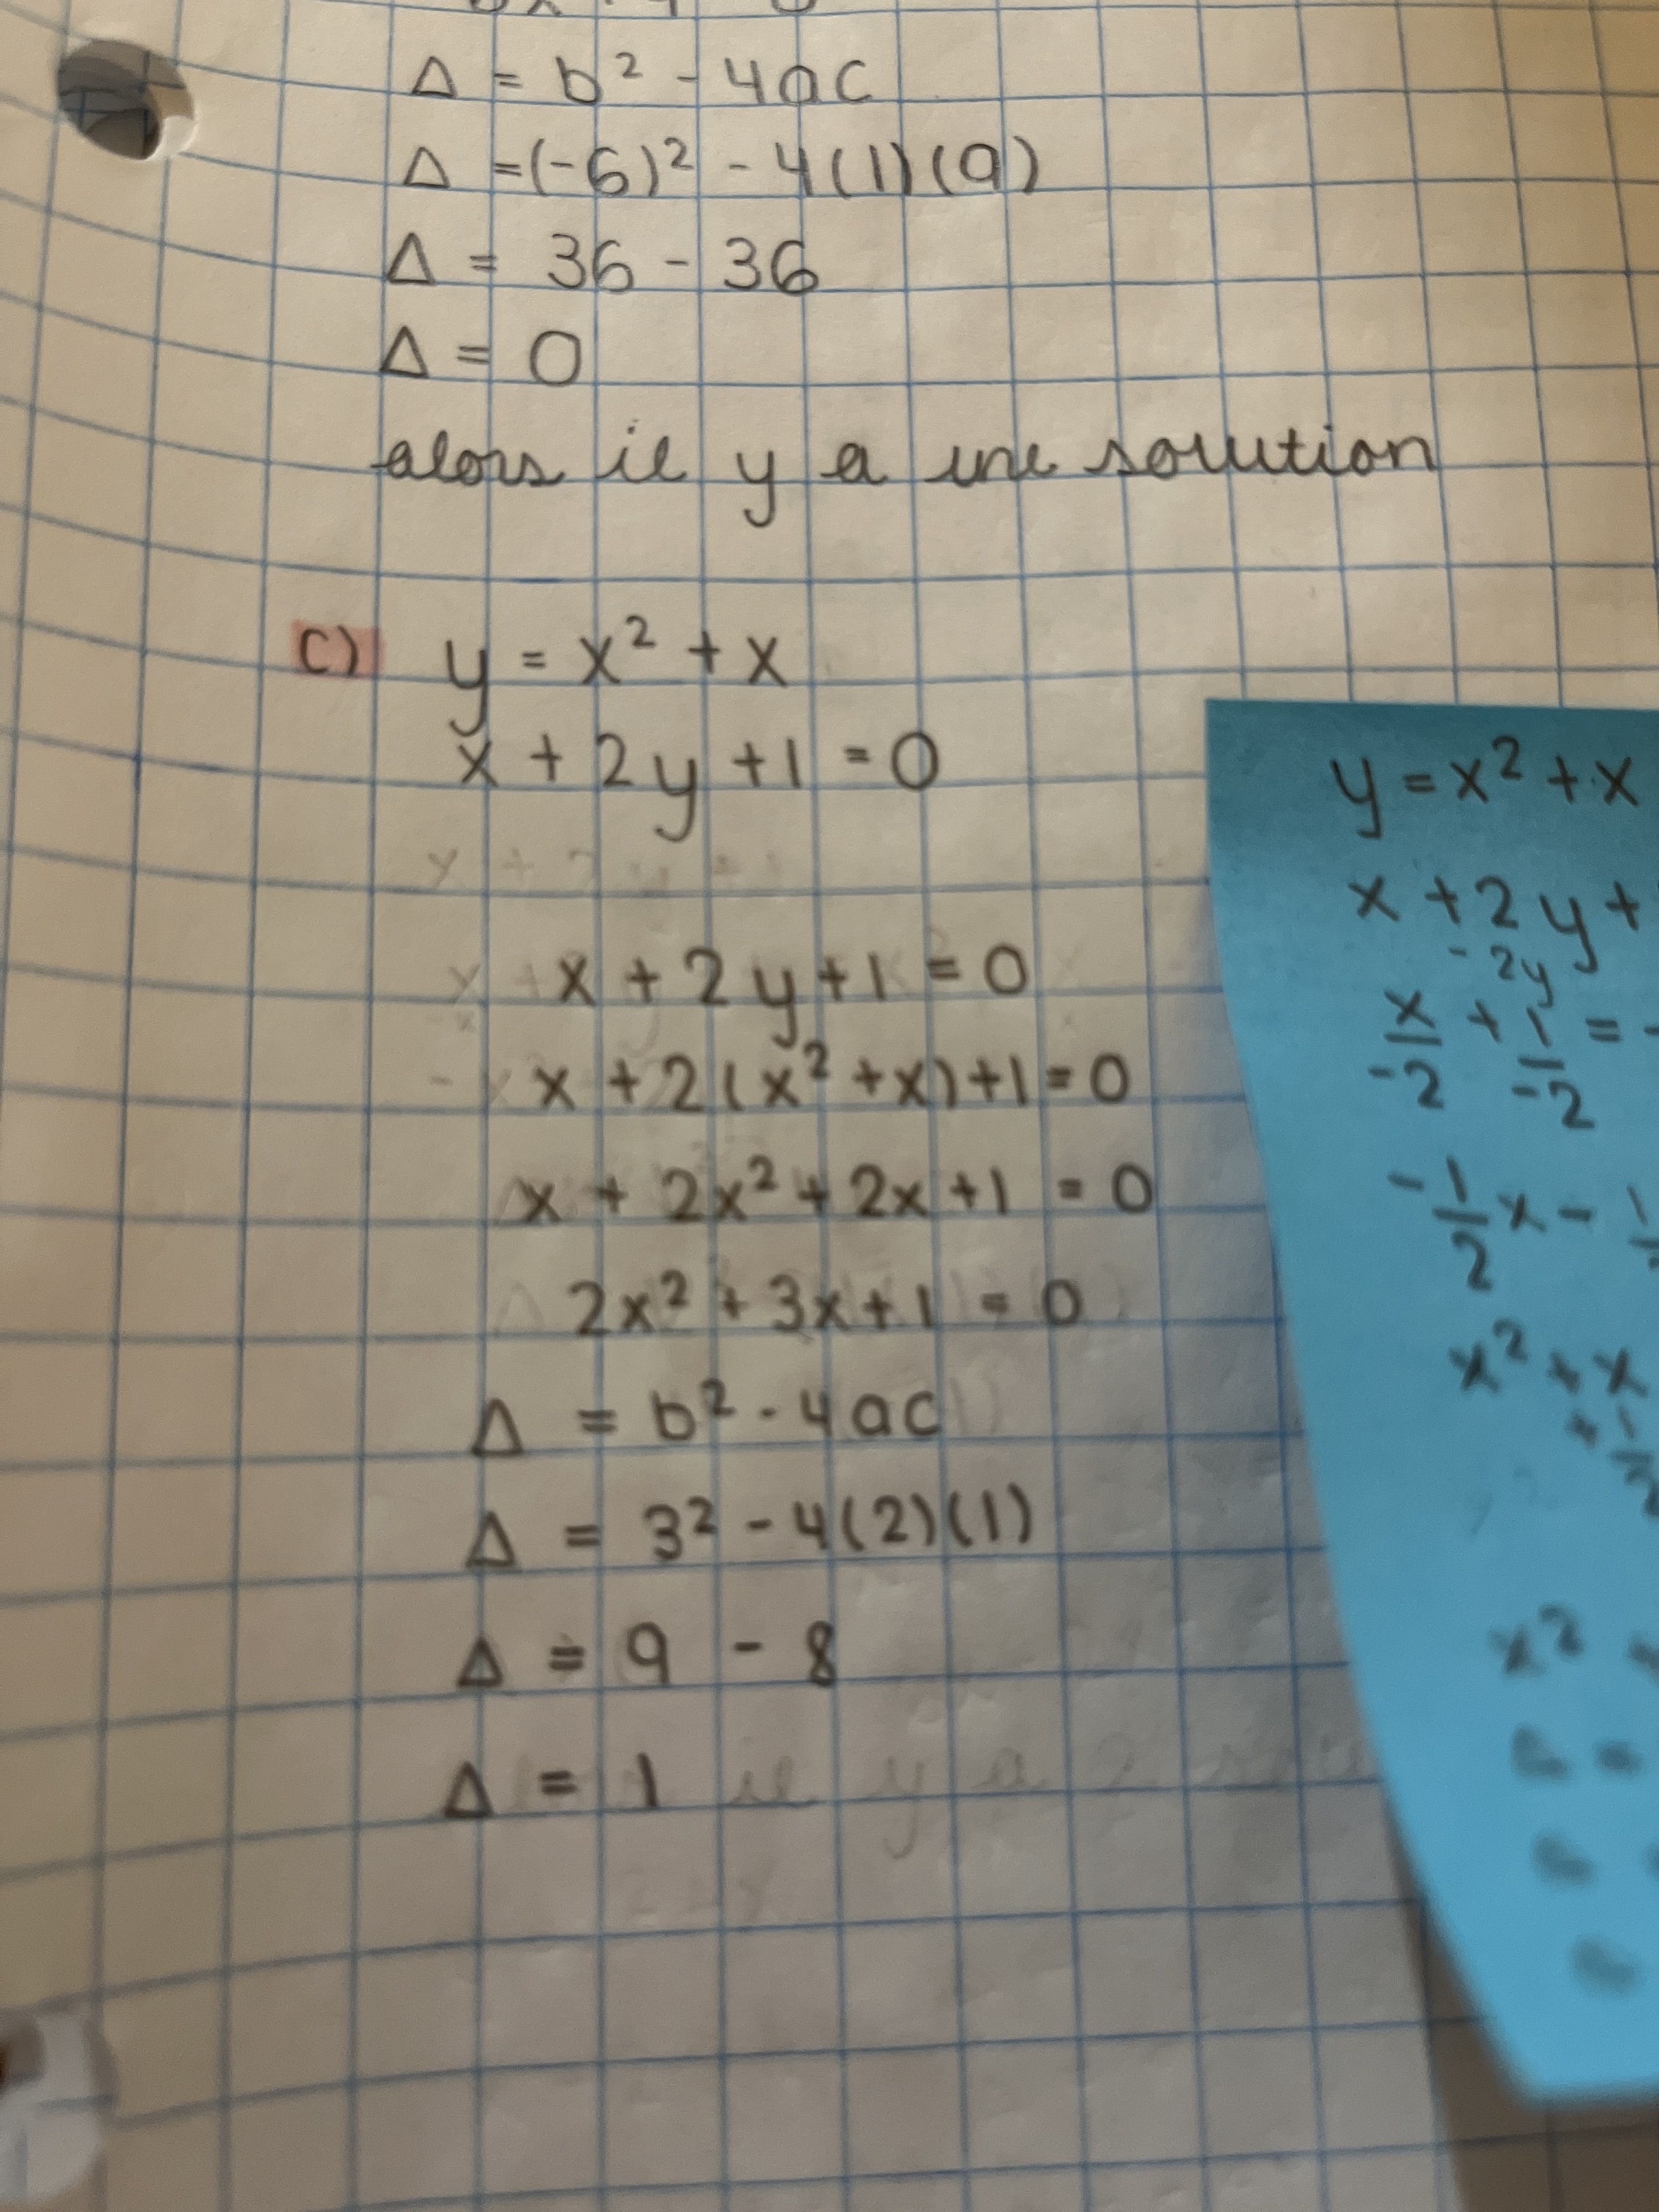 Δ = b² - 4ac
Δ = (-6)² - 4(1)(9)
Δ = 36 - 36
Δ = 0
alors il y a une solution
c) y = x² + x
x + 2y + 1 = 0
x + 2y + 1 = 0
x + 2(x² + x) + 1 = 0
x + 2x² + 2x + 1 = 0
2x² + 3x + 1 = 0
Δ = b² - 4ac
Δ = 3² - 4(2)(1)
Δ = 9 - 8
Δ = 1 il y a 2
y = x² + x
x + 2y +
- 2y
x/-2 + 1/-2 = -
-1/2 x - 1
x² + x
+ 1/2
x²